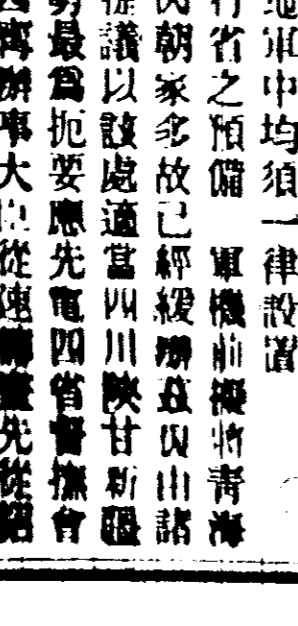 地軍中均須一律設道
行省之預備　軍機前擬將青海
朝家多故已經緩辦茲因山諸
議以該處適當四川陝甘新疆
最為扼要應先電四省督撫會
辦事大臣從速　先從